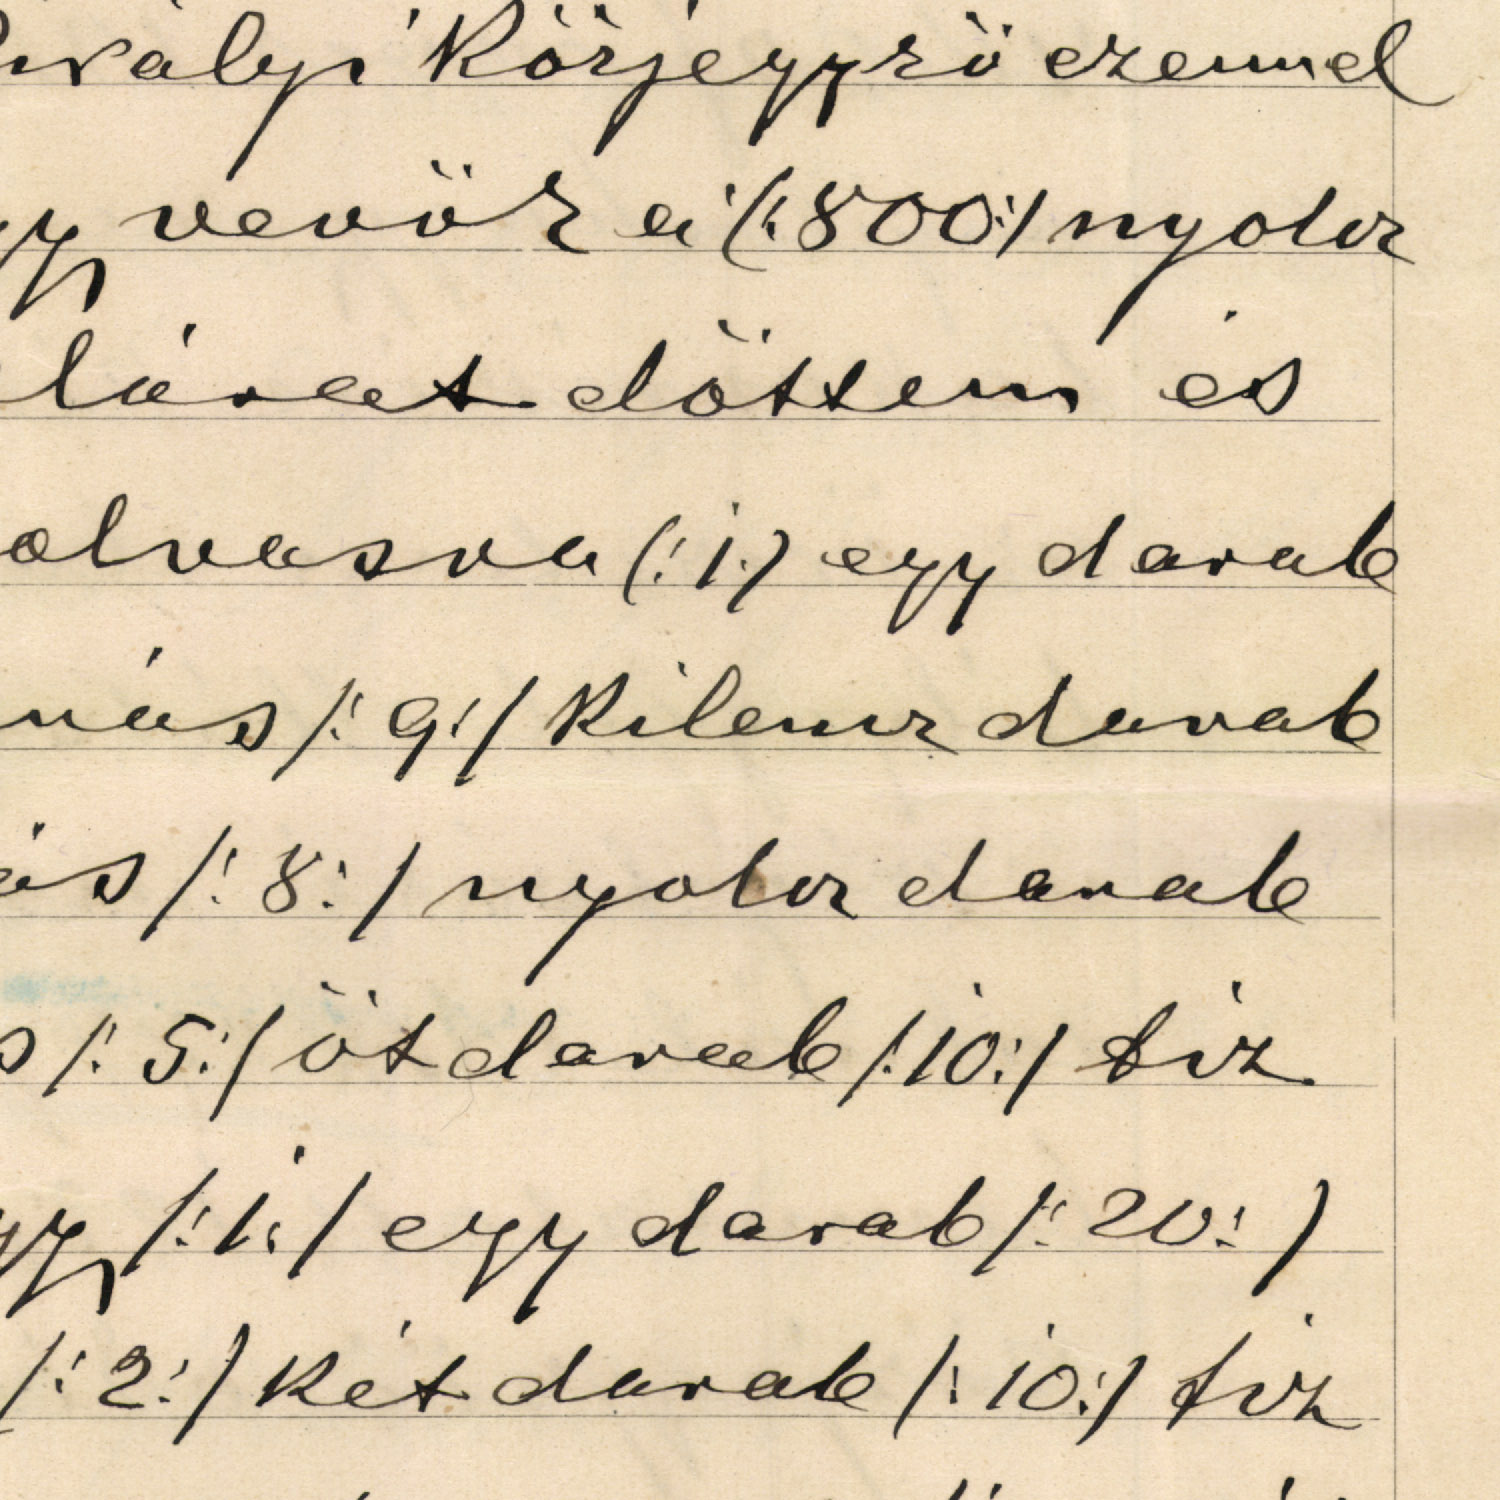 Körjegyző ezennel
gy vevök ei (:800:/ nyolcz
lárat döttem és
olvasva (:1:) egy darab
nás /:9:/ kilencz darab
ás /:8:/ nyolcz darab
s /:5:/ öt darab /:10:/ tiz
gy /:1:/ egy darab /:20:)
/:2:/ két darab /:10:/ tiz